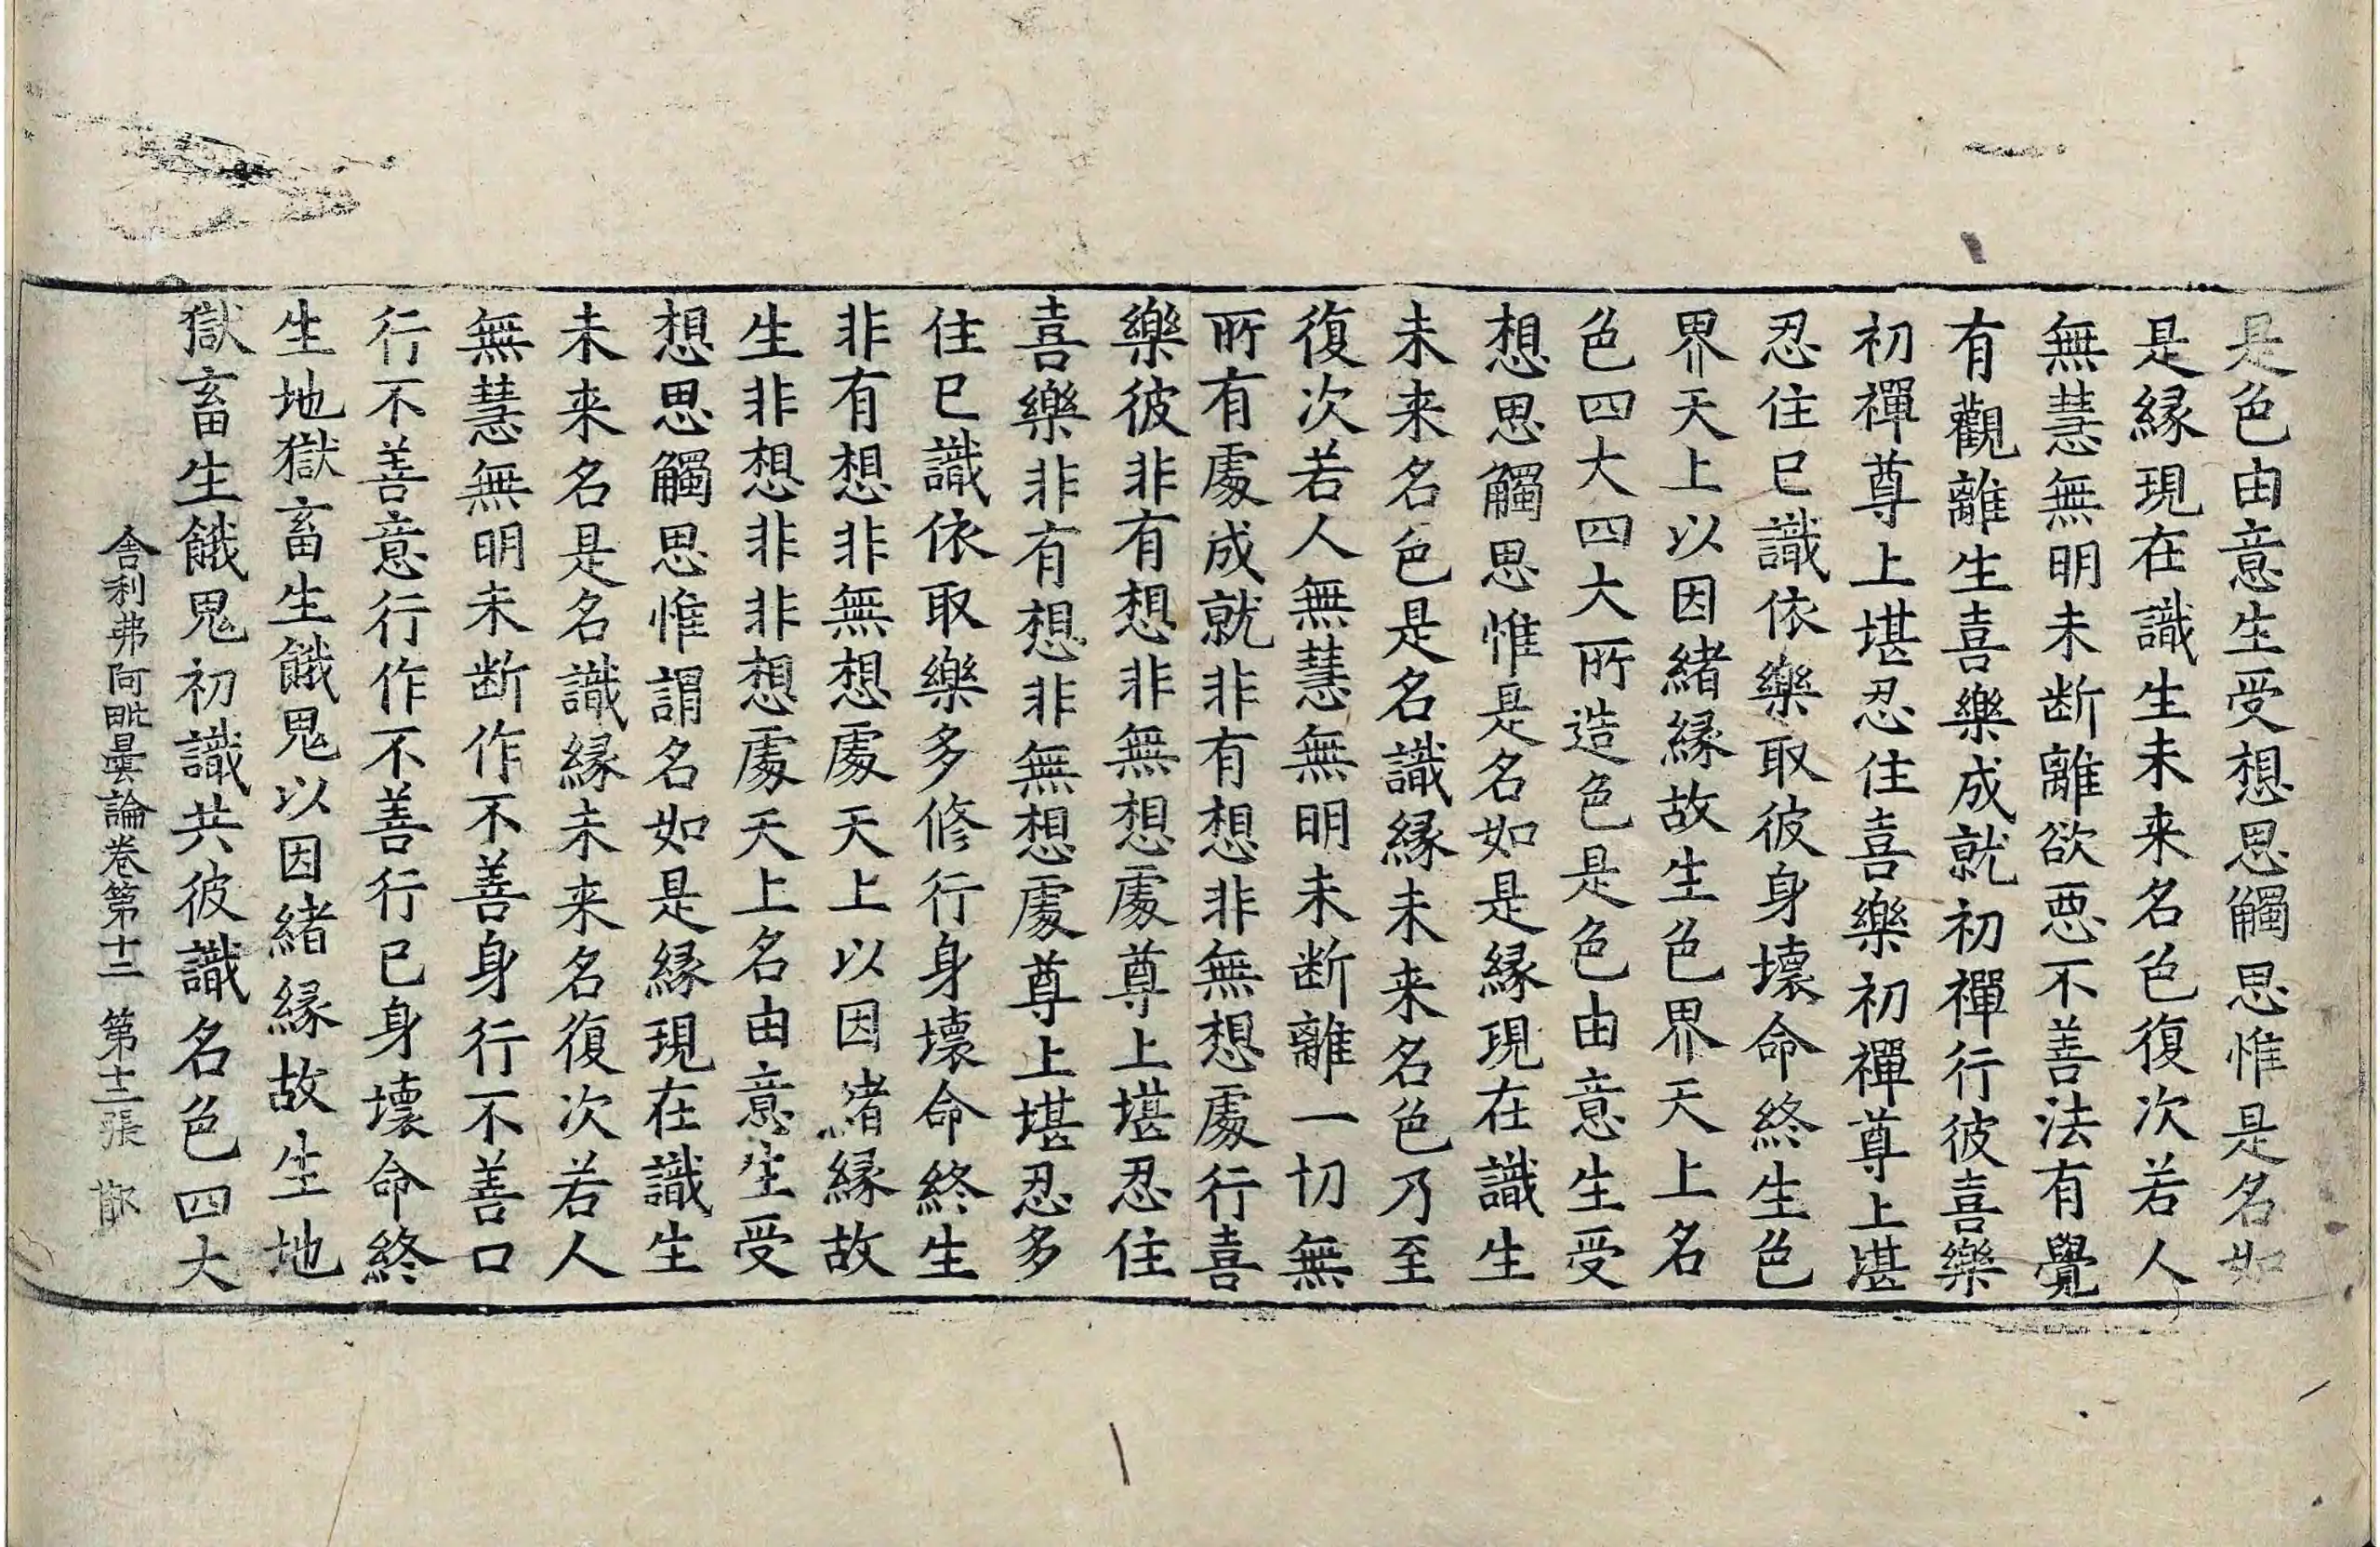 是色由意生受想思觸思惟是名如
是緣現在識生未来名色復次若人
無慧無明未断離欲惡不善法有覺
有觀離生喜樂成就初禪行彼喜樂
初禪尊上堪忍住喜樂初禪尊上堪
忍住已識依樂取彼身壞命終生色
界天上以因緒緣故生色界天上名
色四大四大所造色是色由意生受
想思觸思惟是名如是緣現在識生
未来名色是名識緣未来名色乃至
復次若人無慧無明未断離一切無
所有處成就非有想非無想處行喜
樂彼非有想非無想處尊上堪忍住
喜樂非有想非無想處尊上堪忍多
住已識依取樂多修行身壞命終生
非有想非無想處天上以因緒緣故
生非想非非想處天上名由意生受
想思觸思惟謂名如是緣現在識生
未来名是名識緣未来名復次若人
無慧無明未断作不善身行不善口
行不善意行作不善行已身壞命終
生地獄畜生餓鬼以因緒緣故生地
獄畜生餓鬼初識共彼識名色四大
舍利弗阿毗曇論卷第十二 第十二張